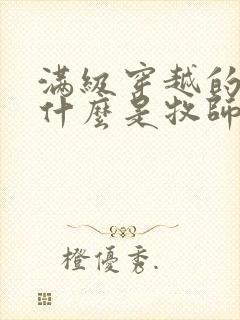 滿級穿越的
什麼是牧師
橙優秀.